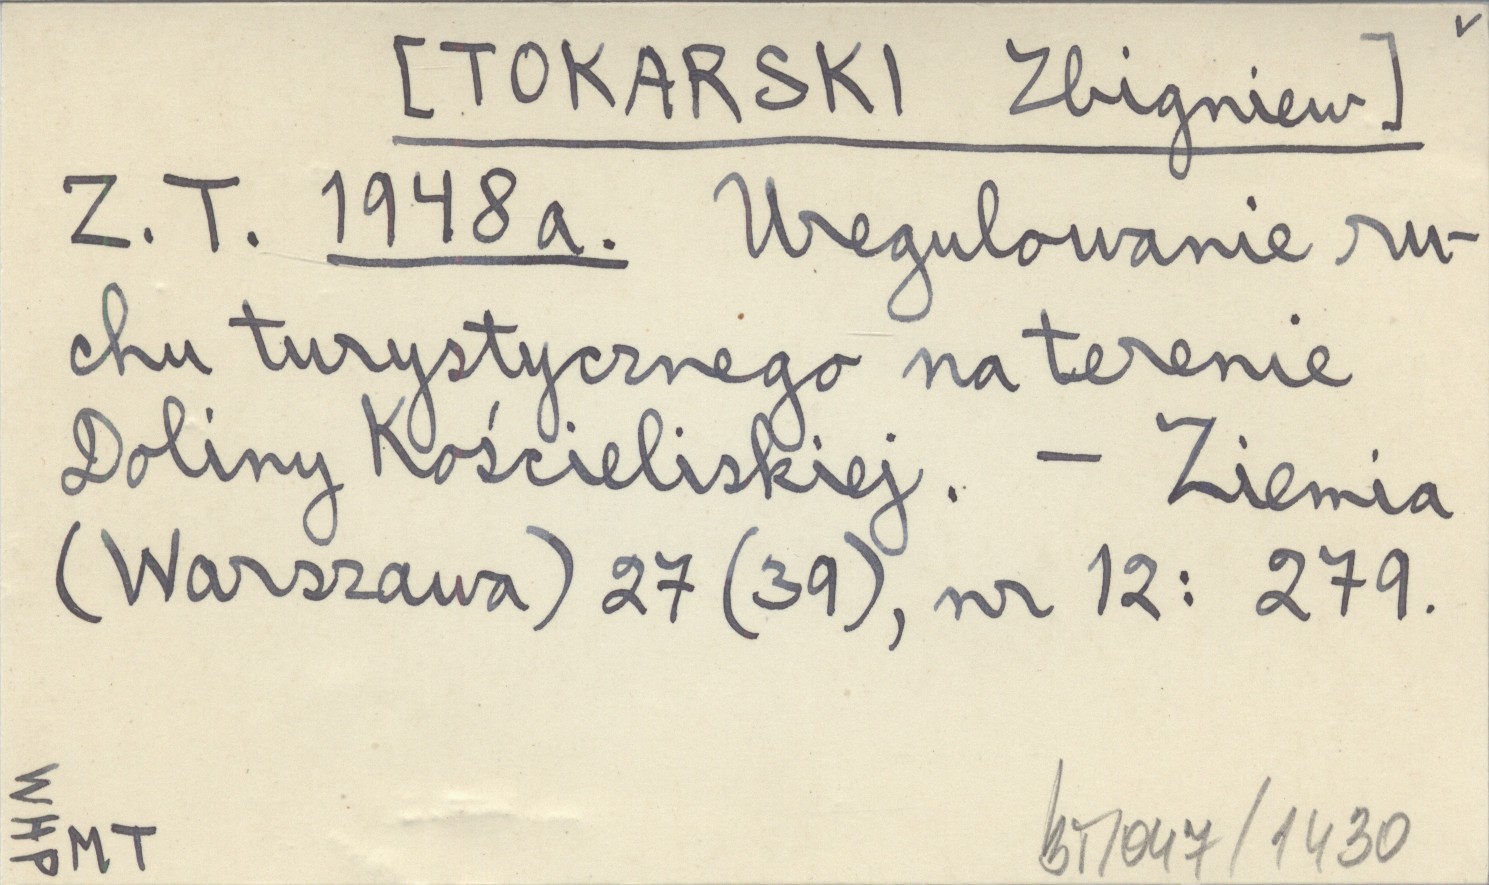 v
[TOKARSKI Zbigniew]
Z. T. 1948a. Uregulowanie ru-
chu turystycznego na terenie
Doliny Kościeliskiej. – Ziemia
(Warszawa) 27 (39), nr 12: 279.
WHP
MT
BT/047/1430